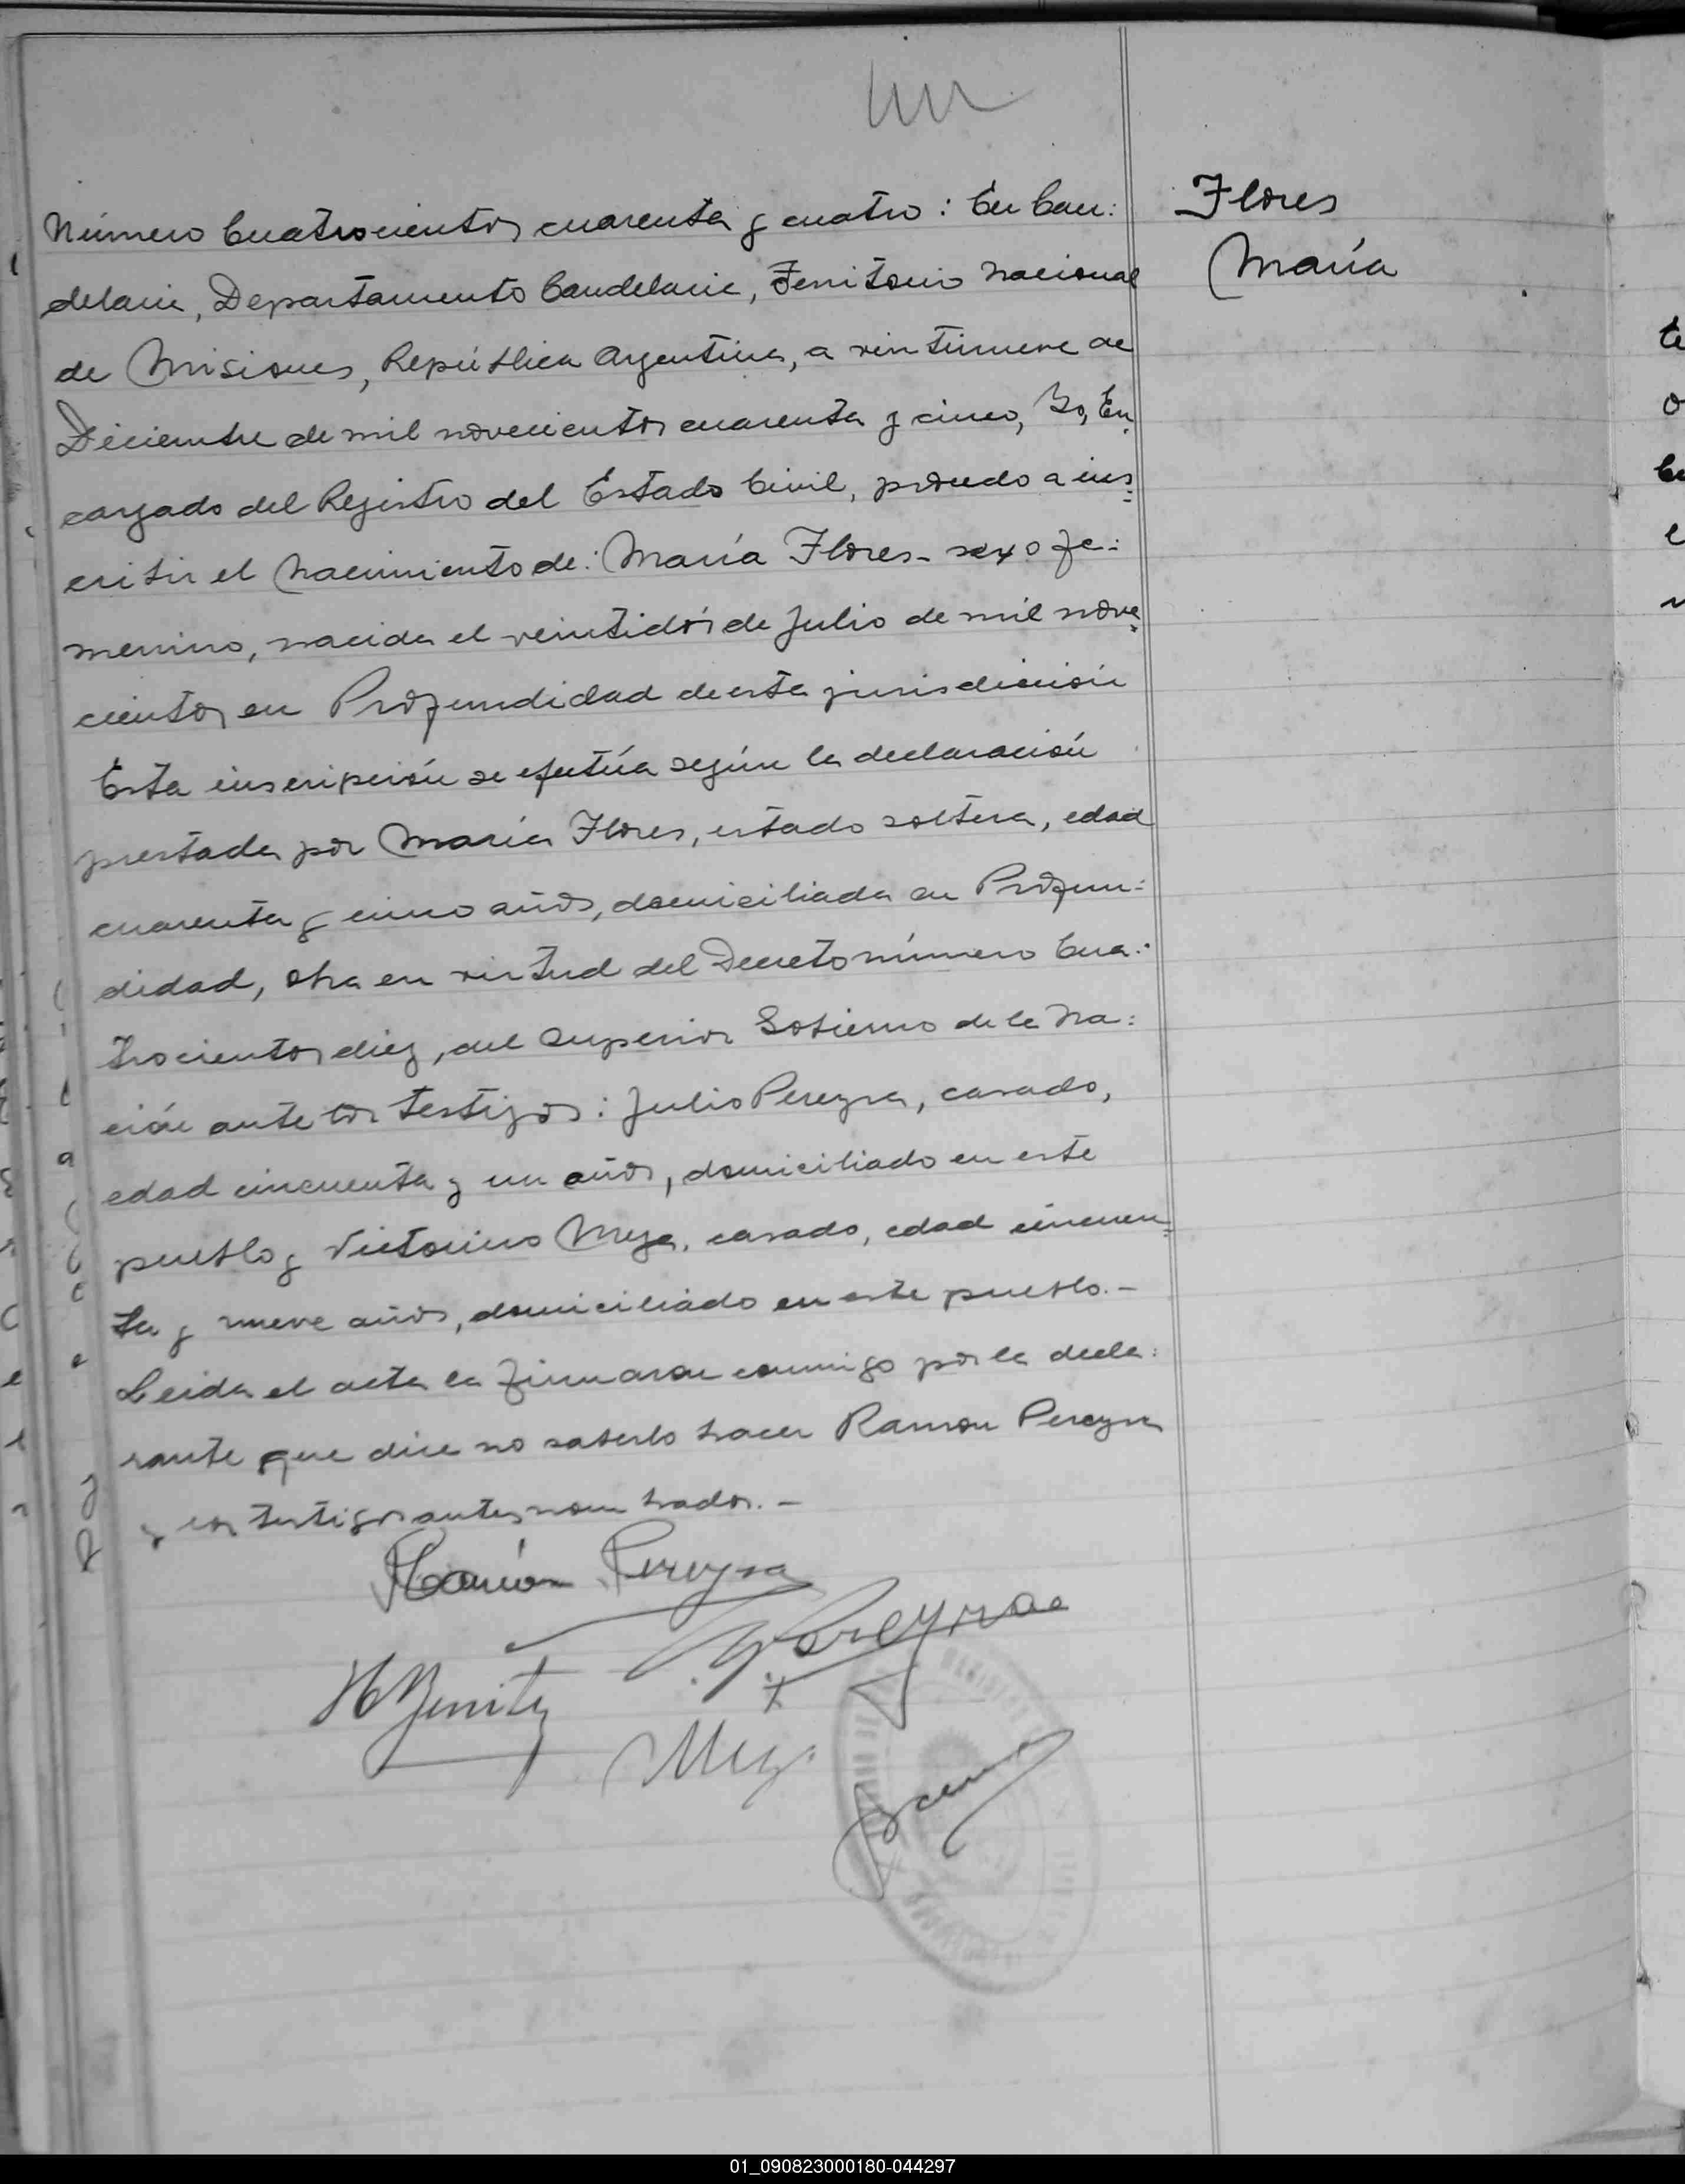 Flores
María
Número Cuatrocientos cuarenta y cuatro: En Can:
delaria, Departamento Candelaria, Territorio Nacional
de Misiones, República Argentina, a veintinueve de
Diciembre de mil novecientos cuarenta y cinco, Yo, En
cargado del Registro del Estado Civil, procedo a ins
cribir el Nacimiento de: María Flores - sexo fe:
menino, nacida el veintidós de Julio de mil nove
cientos en Profundidad de esta jurisdicción
Esta inscripción se efectúa según la declaración
prestada por María Flores, estado soltera, edad
cuarenta y cinco años, domiciliada en Profun:
didad, obra en virtud del Decreto número Cua:
trocientos diez, del Superior Gobierno de la Na:
ción ante los testigos: Julio Pereyra, casado,
edad cincuenta y un años, domiciliado en este
pueblo y Victorino Meza, casado, edad cincuen
ta y nueve años, domiciliado en este pueblo.-
Leída el acta la firmaron conmigo por la decla:
rante que dice no saberlo hacer Ramon Pereyra
y los testigos antes nombrados.-
Ramón Pereyra
Pereyra
H Benitez
Meza
01_090823000180-044297